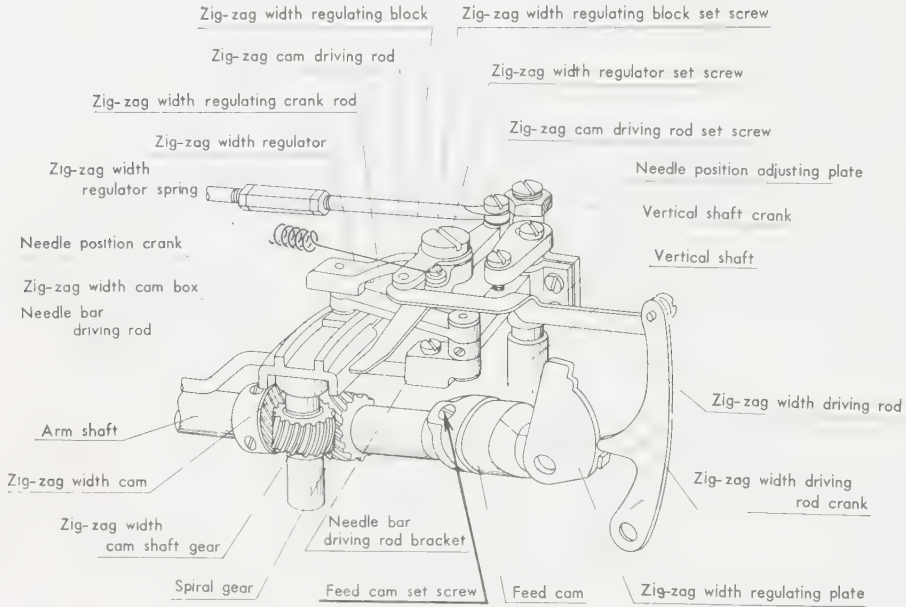 Zig-zag width regulating block
Zig-zag width regulating block set screw
Zig-zag cam driving rod
Zig-zag width regulator set screw
Zig-zag width regulating crank rod
Zig-zag cam driving rod set screw
Zig-zag width regulator
Zig-zag width
regulator spring
Needle position adjusting plate
Vertical shaft crank
Needle position crank
Vertical shaft
Zig-zag width cam box
Needle bar
driving rod
Zig-zag width driving rod
Arm shaft
Zig-zag width cam
Zig-zag width driving
rod crank
Zig-zag width
cam shaft gear
Needle bar
driving rod bracket
Spiral gear
Feed cam set screw
Feed cam
Zig-zag width regulating plate